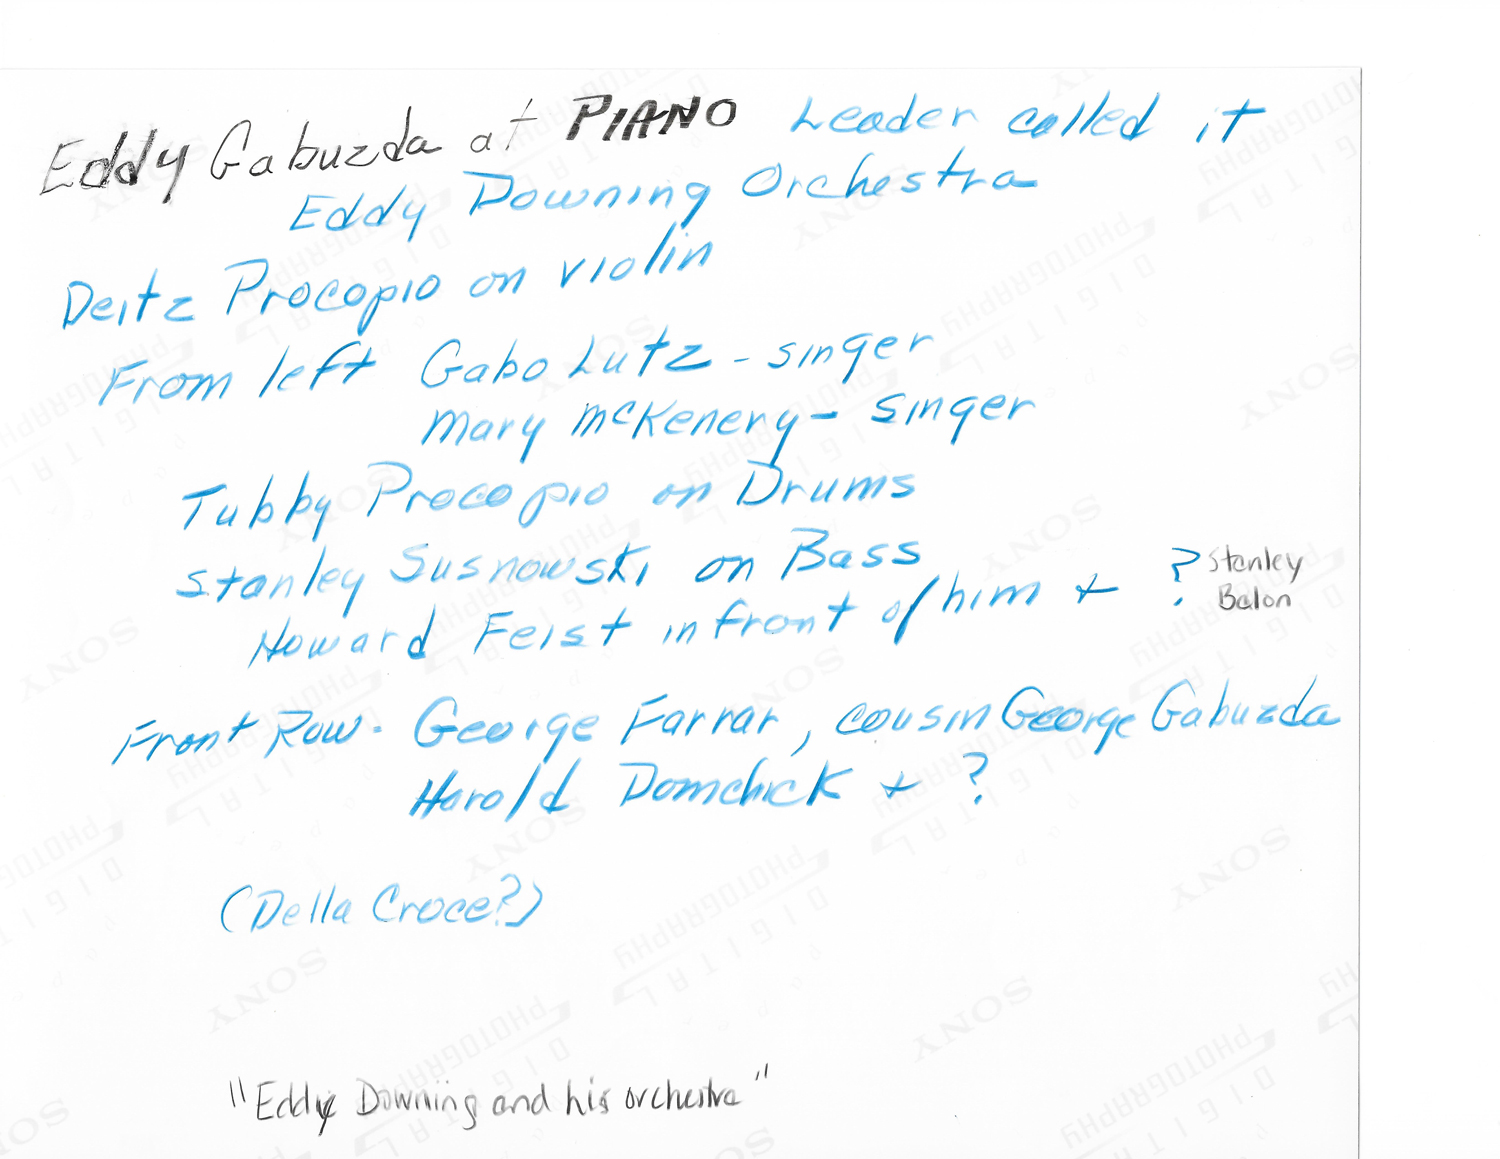 Eddy Gabuzda at PIANO Leader called it
Eddy Downing Orchestra
Deitz Procopio on violin
From left Gabo Lutz - singer
Mary McKenery - singer
Tubby Procopio on Drums
Stanley Susnowski on Bass
Howard Feist in front of him + ? Stanley
Balon
Front Row - George Farrar, cousin George Gabuzda
Harold Domchick + ?
(Della Croce?)
"Eddy Downing and his orchestra"
SONY
DIGITAL
PHOTOGRAPHY